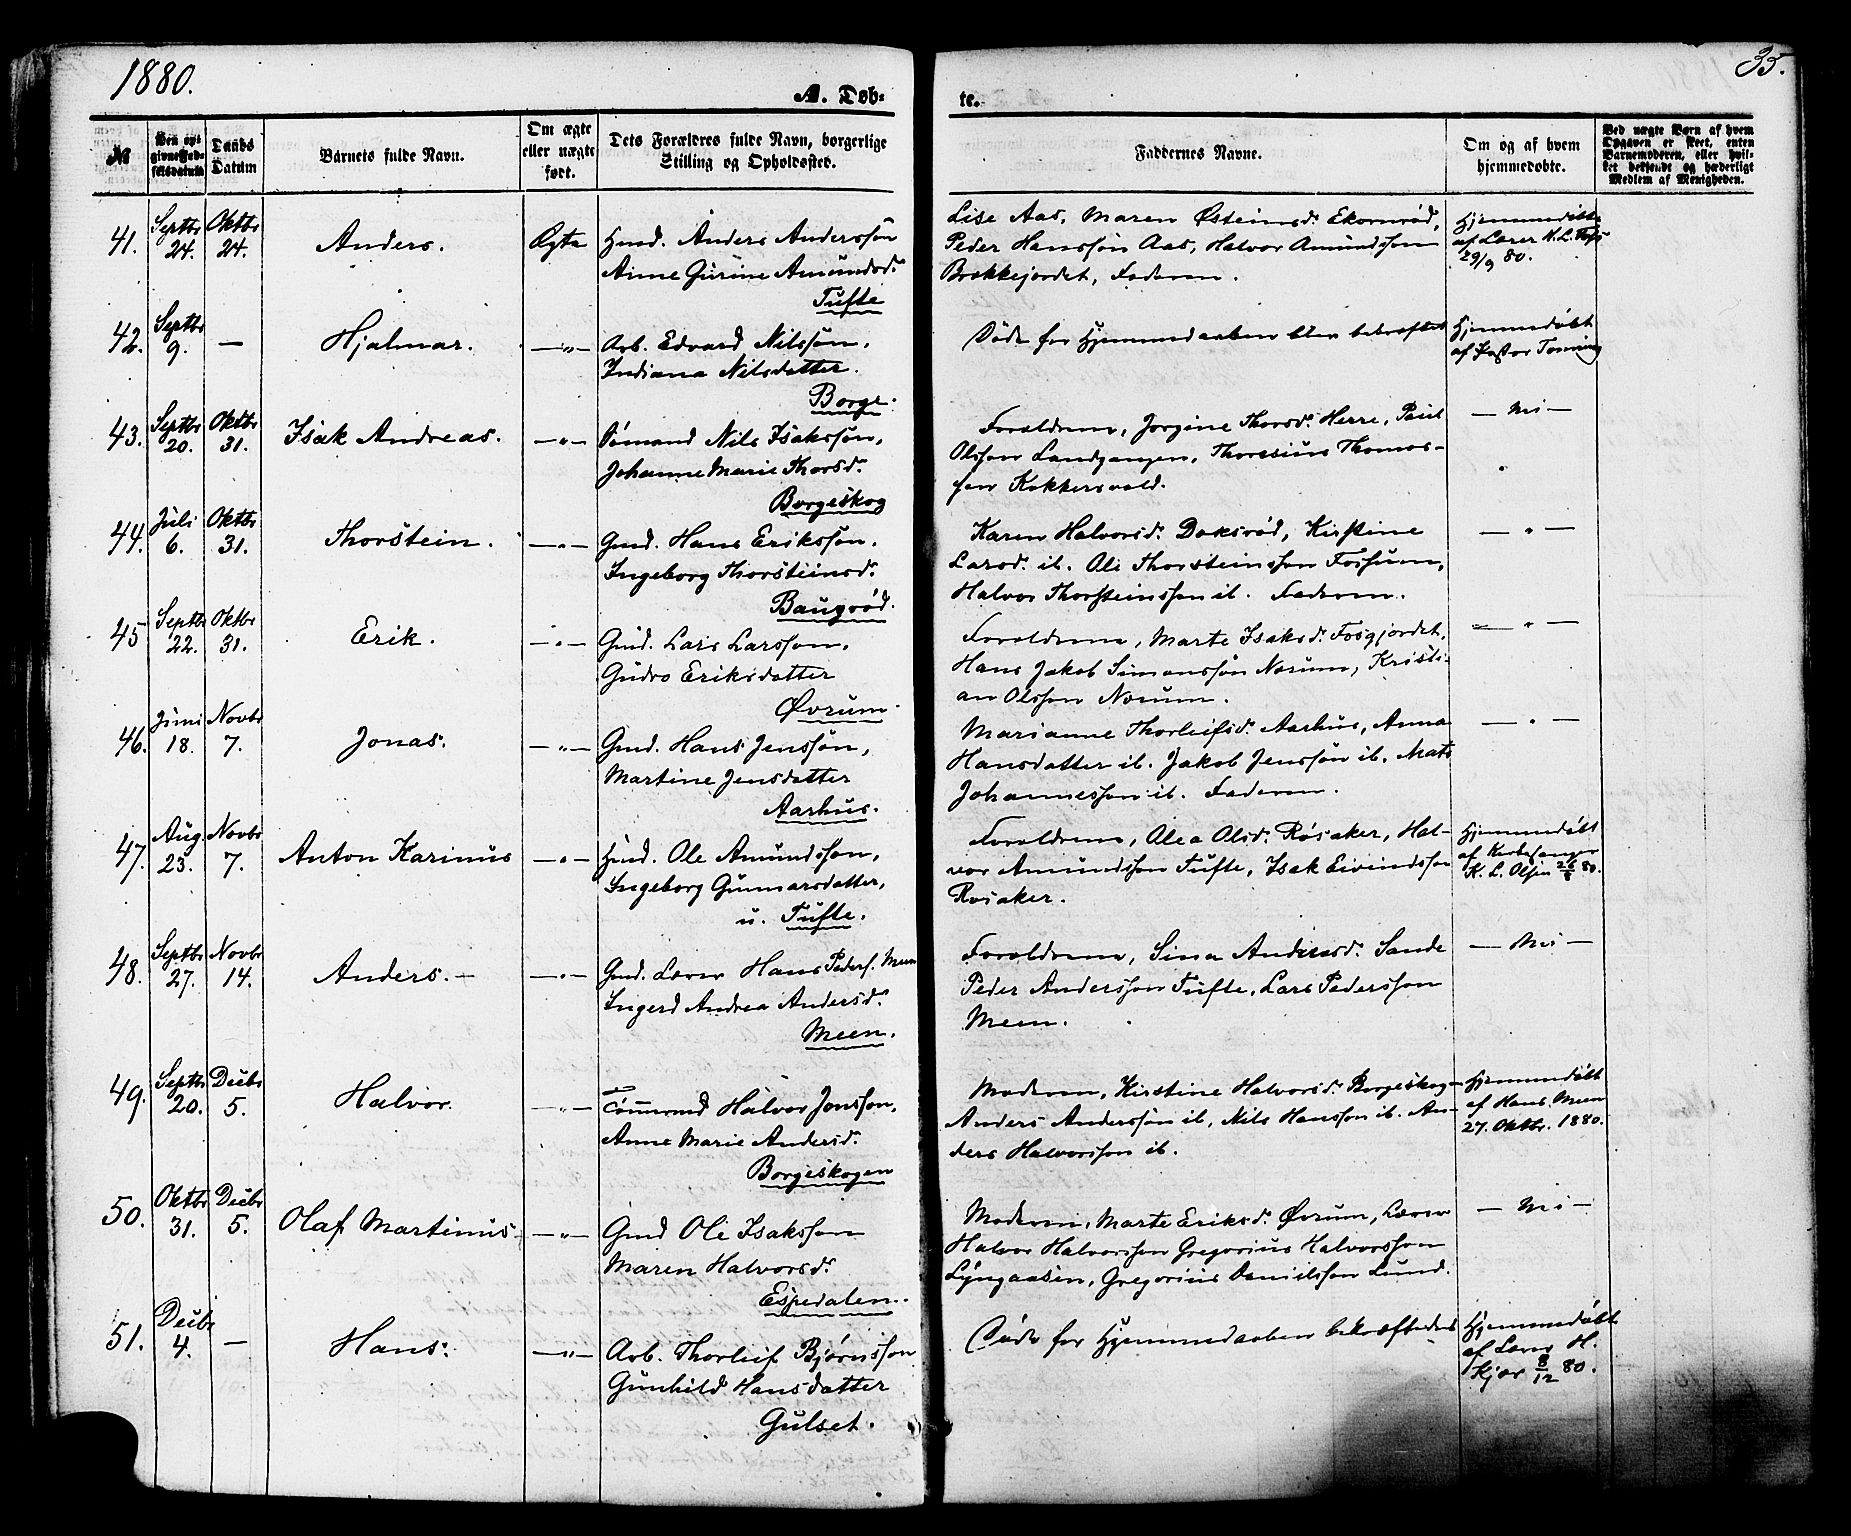 1880.
A. Døb-
te.
35.
№
Den opgivne Fødselsdatum
Daabs Datum
Barnets fulde Navn.
Om ægte eller uægte født.
Dets Forældres fulde Navn, borgerlige Stilling og Opholdssted.
Faddernes Navne.
Om og af hvem hjemmedøbte.
Ved uægte Børn af hvem Opgaven er skeet, enten Barnemoderen, eller hvilket bekjendt og hæderligt Medlem af Menigheden.
41. Septbr 24. Oktbr 24. Anders. Ægte
Hmd. Anders Anderssøn
Anne Gurine Amundsd.
Tufte
Lise Aas, Maren Østeinsd. Ekornrød,
Peder Hanssøn Aas, Halvor Amundssøn
Brekkejordet, Faderen.
Hjemmedøbt
af Lærer
29/9 80.
42. Septbr 9. — Hjalmar. —"—
Arb. Edvard Nilssøn.
Indiana Nilsdatter.
Borge.
Døde før Hjemmedaaben blev bekræftet
Hjemmedøbt
af Pastor Tønning
43. Septbr 20. Oktbr 31. Isak Andreas. —"—
Sømand Nils Isakssøn,
Johanne Marie Thorsd.
Borgeskog
Forældrene, Jorgine Thorsd. Herre, Paul
Olssøn Landgangen, Thoresius Thomas-
søn Kokkersvold.
— Nei —
44. Juli 6. Oktbr 31. Thorstein. —"—
Gmd. Hans Erikssøn.
Ingeborg Thorsteinsd.
Baugrød.
Karen Halvorsd. Baksrød, Kirstine
Larsd. ib. Ole Thorsteinssøn Fossum,
Halvor Thorsteinssøn ib. Faderen.
— " —
45 Septbr 22. Oktbr 31. Erik. —"—
Gmd. Lars Larssøn.
Gudro Eriksdatter
Øvrum.
Forældrene, Marte Isaksd. Fosgjordet,
Hans Jakob Simonssøn Nørum, Kristi-
an Olssøn Nørum.
— " —
46. Juni 18. Novbr 7. Jonas. —"—
Gmd. Hans Jenssøn,
Martine Jensdatter
Aarhus.
Marianne Thorleifsd. Aarhus, Anna
Hansdatter ib. Jakob Jenssøn ib. Mats
Johannessøn ib. Faderen.
— " —
47. Aug. 23. Novbr 7. Anton Karinius —"—
Hmd. Ole Amundssøn,
Ingeborg Gunnarsdatter,
u. Tufte.
Forældrene, Alea Olsd. Røsaker, Hal-
vor Amundssøn Tufte, Isak Eivindssøn
Røsaker.
Hjemmedøbt
af Kirkesanger
K. L. Olsen 26/8 80.
48. Septbr 27. Novbr 14. Anders. —"—
Gmd. Lærer Hans Peders. Meen
Ingerd Andrea Andersd.
Meen.
Forældrene, Sina Andersd. Sande
Peder Anderssøn Tufte, Lars Pederssøn
Meen.
— Nei —
49. Septbr 20. Decbr 5. Halvor. —"—
Tømmmd Halvor Jonssøn,
Anne Marie Andersd.
Borgeskogen
Moderen, Kirstine Halvorsd. Borgeskog
Anders Anderssøn ib, Nils Hanssøn ib. An-
ders Halvorssøn ib.
Hjemmedøbt
af Hans Meen
27. Oktbr. 1880.
50. Oktbr 31. Decbr 5. Olaf Martinius —"—
Gmd Ole Isakssøn
Maren Halvorsd.
Espedalen.
Moderen, Marte Eriksd. Øvrum, Lærer
Halvor Halvorssøn Gregorius Halvorssøn
Lyngaasen, Gregorius Danielssøn Lund.
— Nei —
51. Decbr 4. — Hans. —"—
Arb. Thorleif Bjørnssøn
Gunhild Hansdatter
Gulset.
Døde før Hjemmedaaben bekræftedes
Hjemmedøbt
af Lærer H.
Kjær 8/12 80.